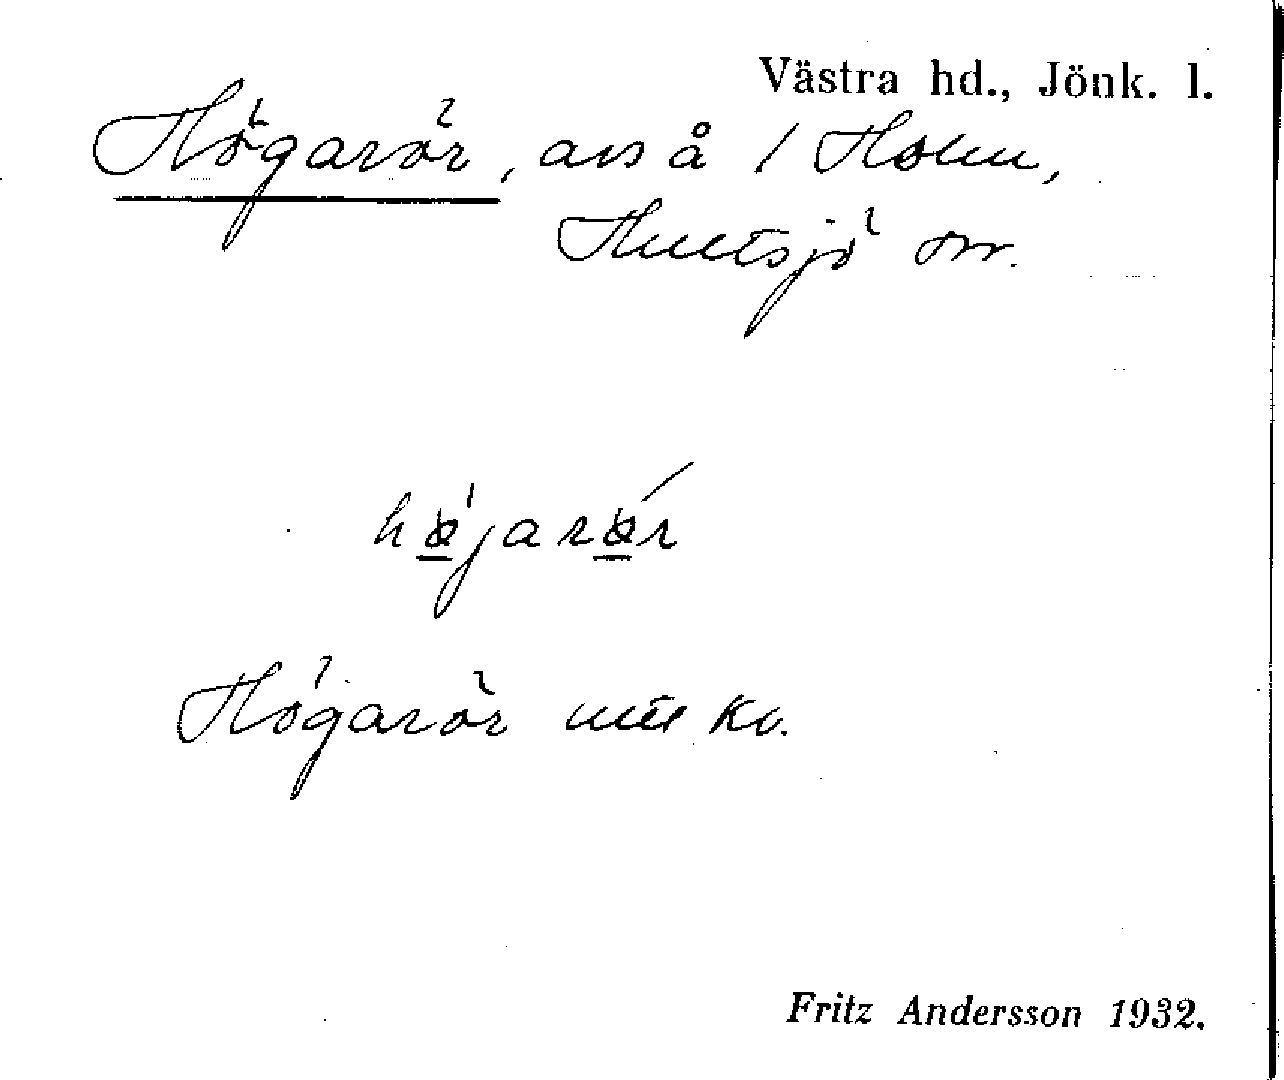 Västra hd., Jönk. l.
Högarör, avs å 1 Holm,
Hultsjö sn.
Högarör
Fritz Andersson 1932.